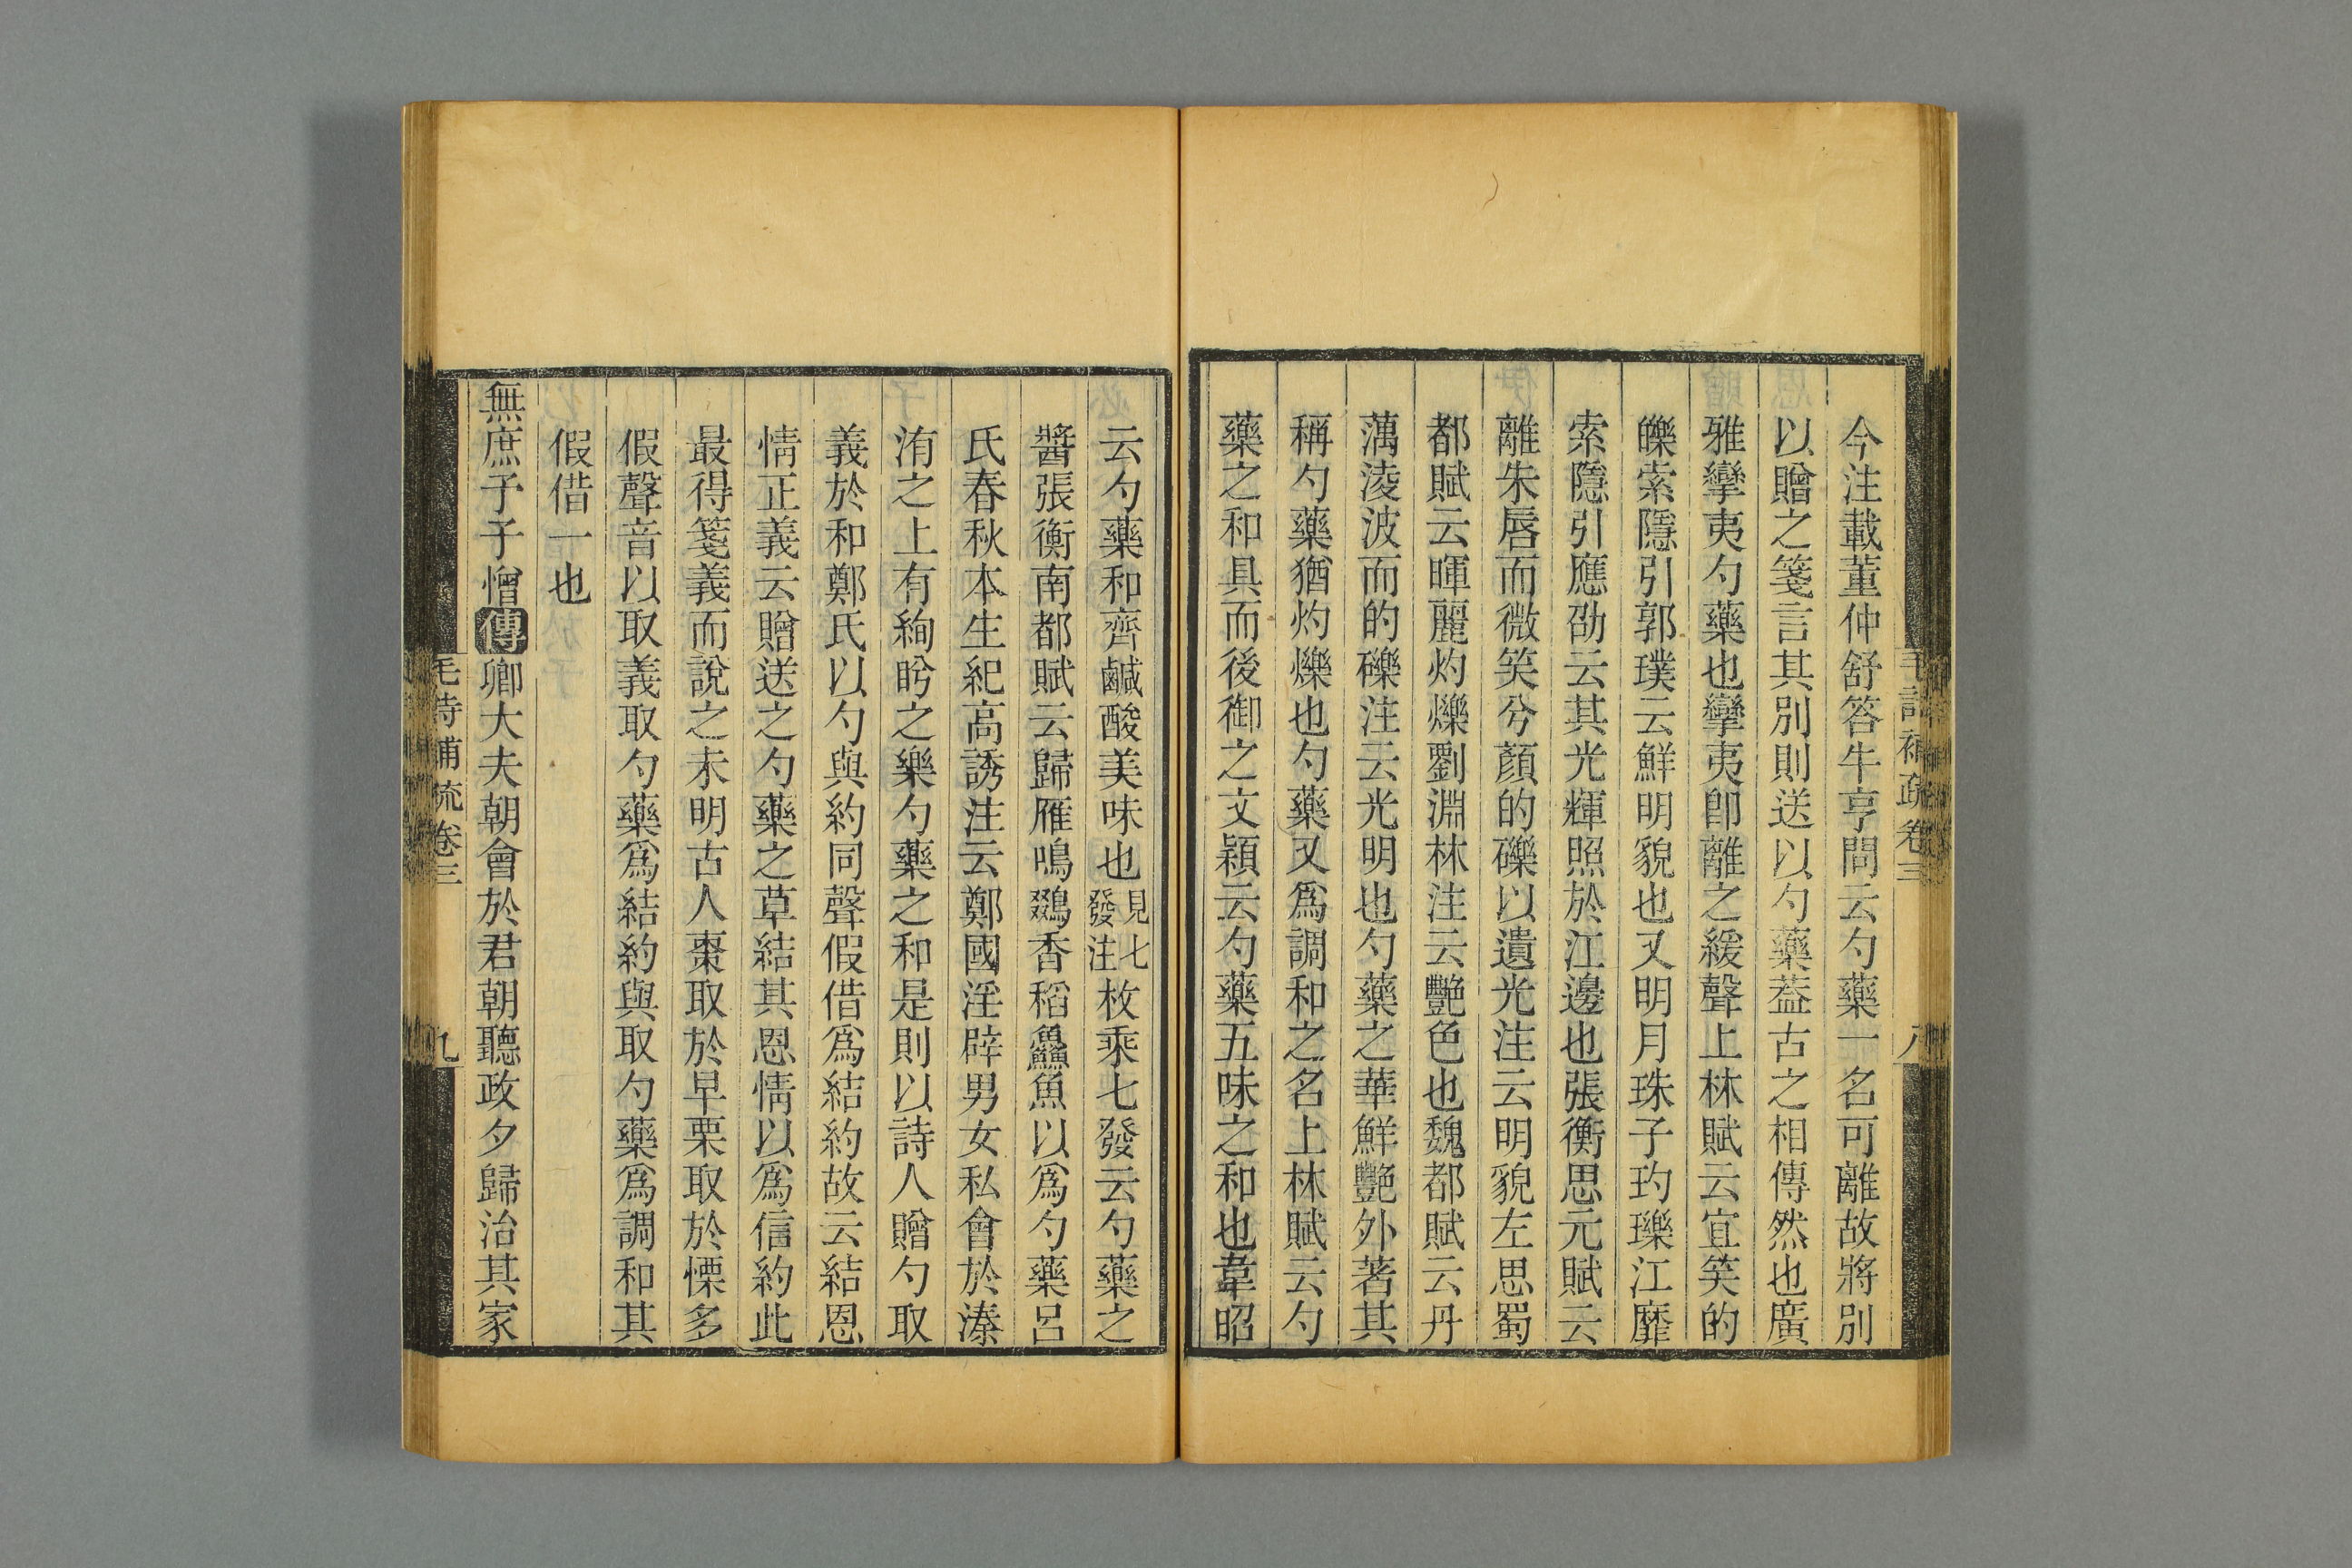 今注載董仲舒答牛亨問云勺藥一名可離故將別
以贈之箋言其別則送以勺藥葢古之相傳然也廣
雅攣夷勺藥也攣夷卽離之緩聲上林賦云宜笑的
皪索隱引郭璞云鮮明貌也又明月珠子玓瓅江靡
索隱引應劭云其光輝照於江邊也張衡思元賦云
離朱唇而微笑兮顏的礫以遺光注云明貌左思蜀
都賦云暉麗灼爍劉淵林注云豔色也魏都賦云丹
藕淩波而的礫注云光明也勺藥之華鮮豔外著其
稱勺藥猶灼爍也勺藥又爲調和之名上林賦云勺
藥之和具而後御之文穎云勺藥五味之和也韋昭
毛詩補疏卷三 八
云勺藥和齊鹹酸美味也見七發注枚乘七發云勺藥之
醬張衡南都賦云歸雁鳴鵽香稻鱻魚以爲勺藥呂
氏春秋本生紀高誘注云鄭國淫辟男女私會於溱
洧之上有絢盻之樂勺藥之和是則以詩人贈勺取
義於和鄭氏以勺與約同聲假借爲結約故云結恩
情正義云贈送之勺藥之草結其恩情以爲信約此
最得箋義而說之未明古人棗取於早栗取於慄多
假聲音以取義取勺藥爲結約與取勺藥爲調和其
假借一也
無庶予子憎傳卿大夫朝會於君朝聽政夕歸治其家
毛詩補疏卷三 九